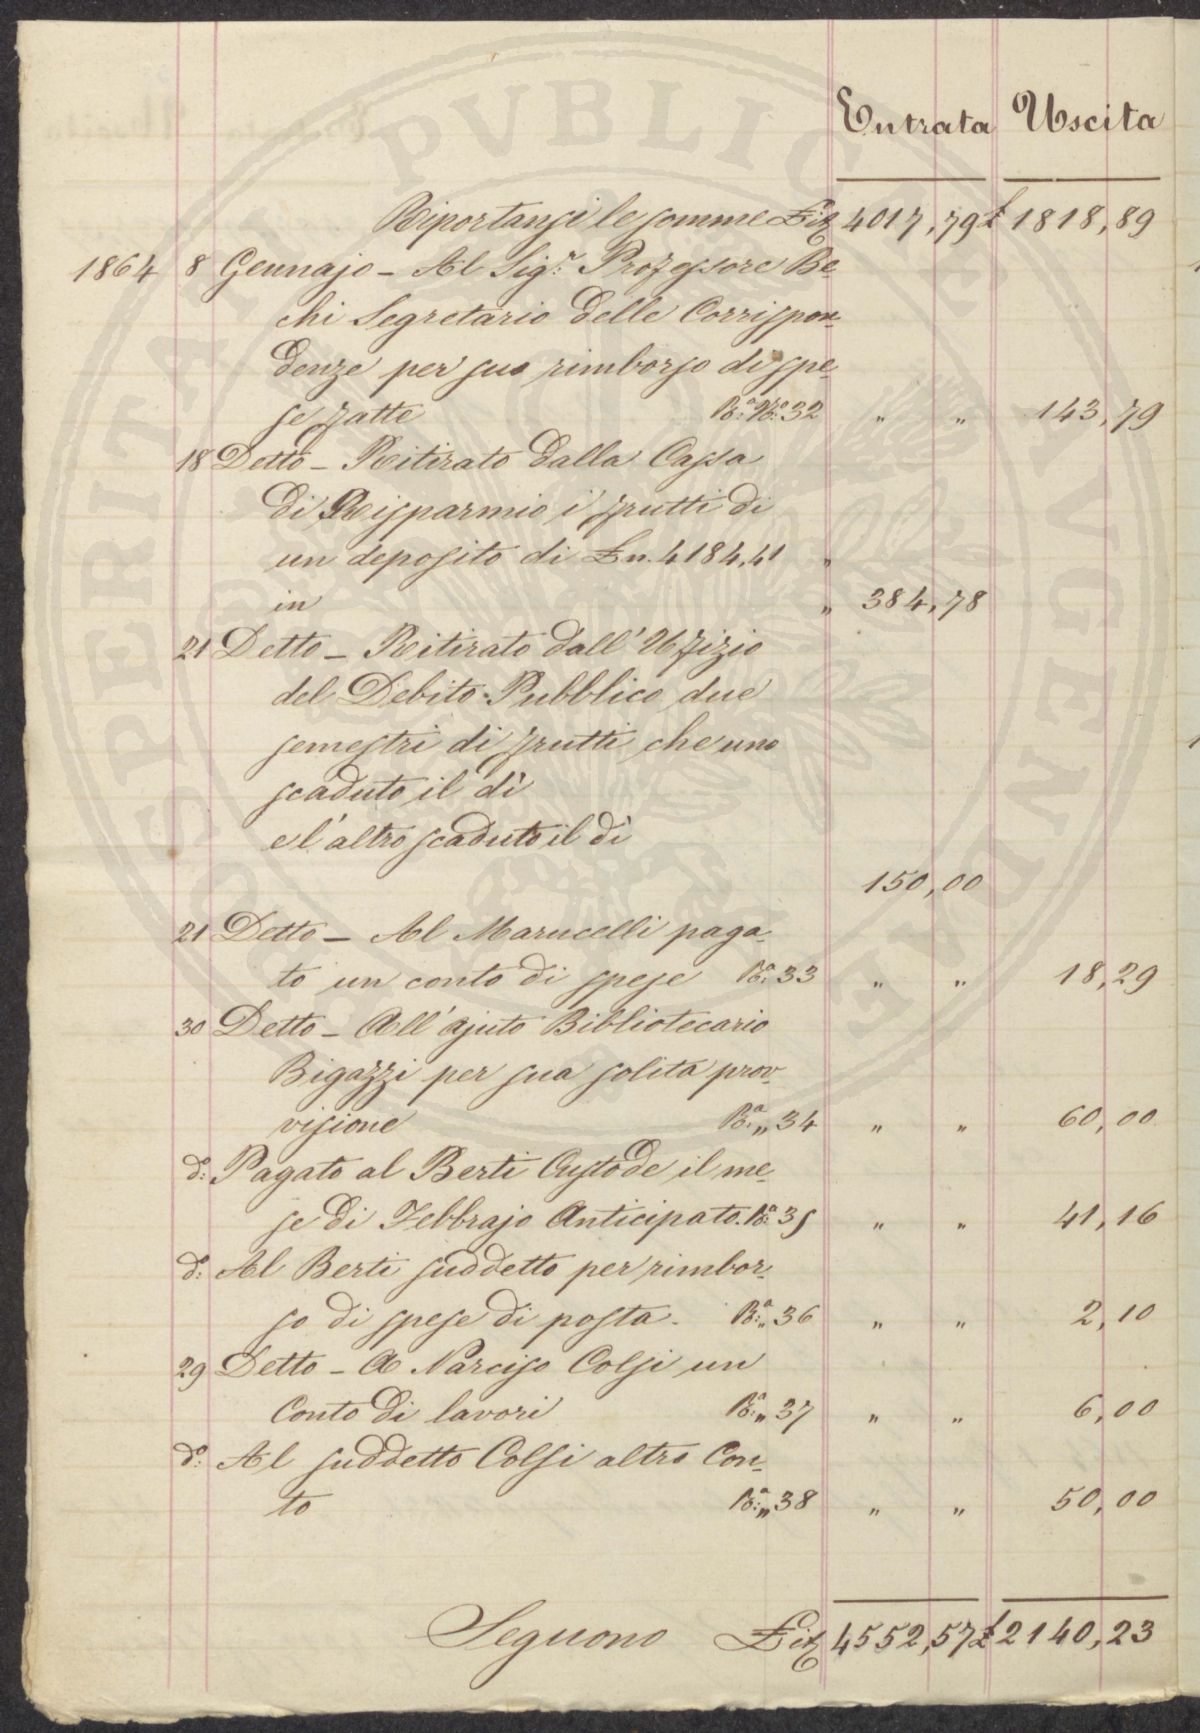 Entrata Uscita
Riportansi le somme £it 4017,79 £ 1818,89
1864 8 Gennajo - Al Sig.r Professore Be-
chi Segretario delle Corrispon-
denze per suo rimborso di spe-
se fatte R.a N.o 32 " " 143,79
18 Detto - Ritirato dalla Cassa
di Risparmio i frutti di
un deposito di £n. 4184,41 "
in " 384,78
21 Detto - Ritirato dall'Ufizio
del Debito Pubblico due
semestri di frutti che uno
scaduto il dì
e l'altro scaduto il dì
150,00
21 Detto - Al Marucelli paga-
to un conto di spese R.a 33 " " 18,29
30 Detto - All'ajuto Bibliotecario
Bigazzi per sua solita prov-
visione R.a " 34 " " 60,00
d.o Pagato al Berti Custode il me-
se di Febbrajo Anticipato. R.a 35 " " 41,16
d.o Al Berti suddetto per rimbor-
so di spese di posta. R.a " 36 " " 2,10
29 Detto - A Narciso Colsi un
Conto di lavori R.a " 37 " " 6,00
d.o Al suddetto Colsi altro Con-
to R.a " 38 " " 50,00
Seguono £it 4552,57 £ 2140,23
PROSPERITATI PVBLICAE AVGENDAE